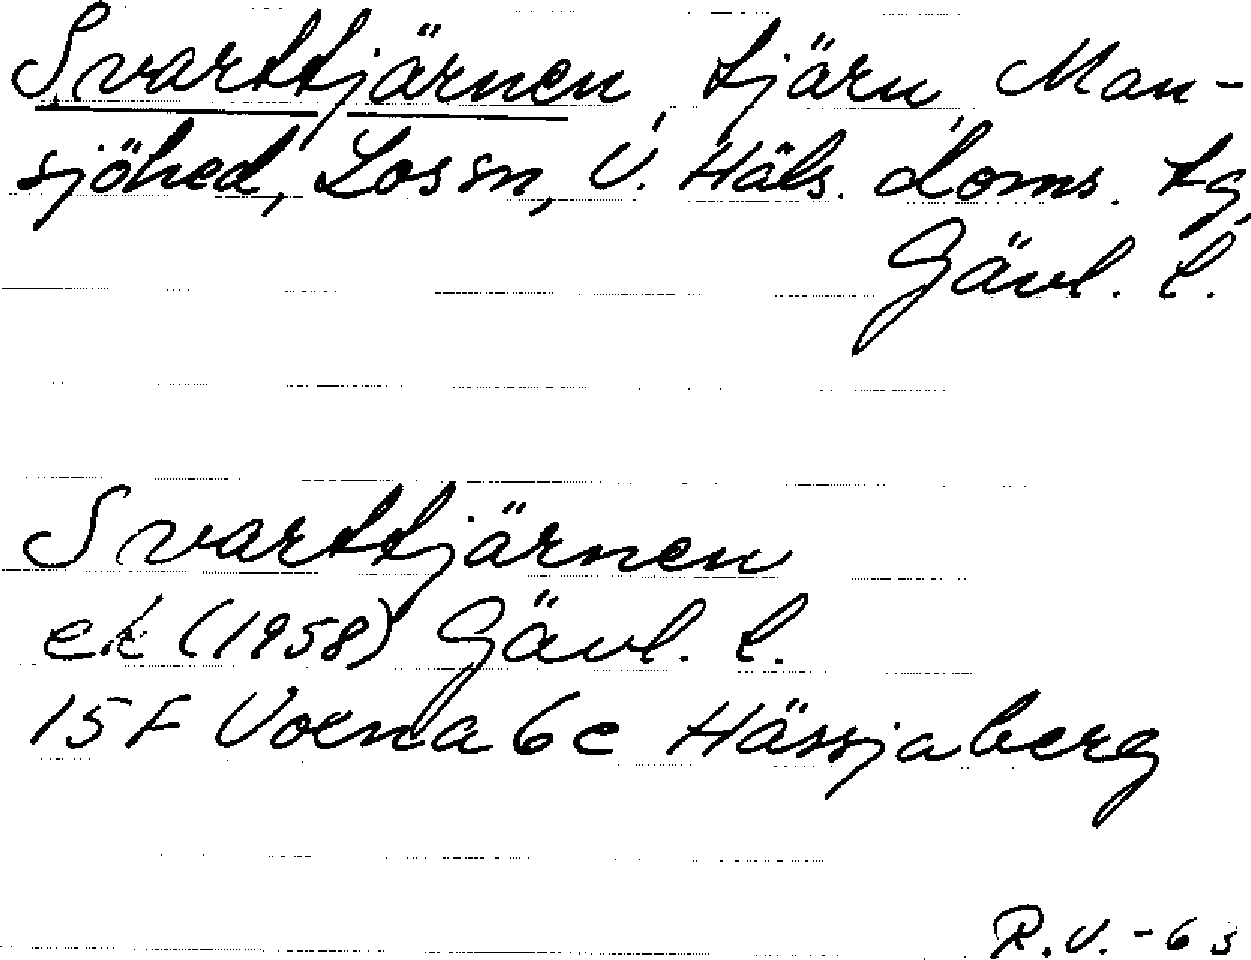 Svarttjärnen, tjärn, Man-
sjöhed, Los sn, V. Häls. doms. tg
Gävl. l.
Svarttjärnen
ek (1958) Gävl. l.
15 F Voxna 6 c Hässjaberg
R.V. -63